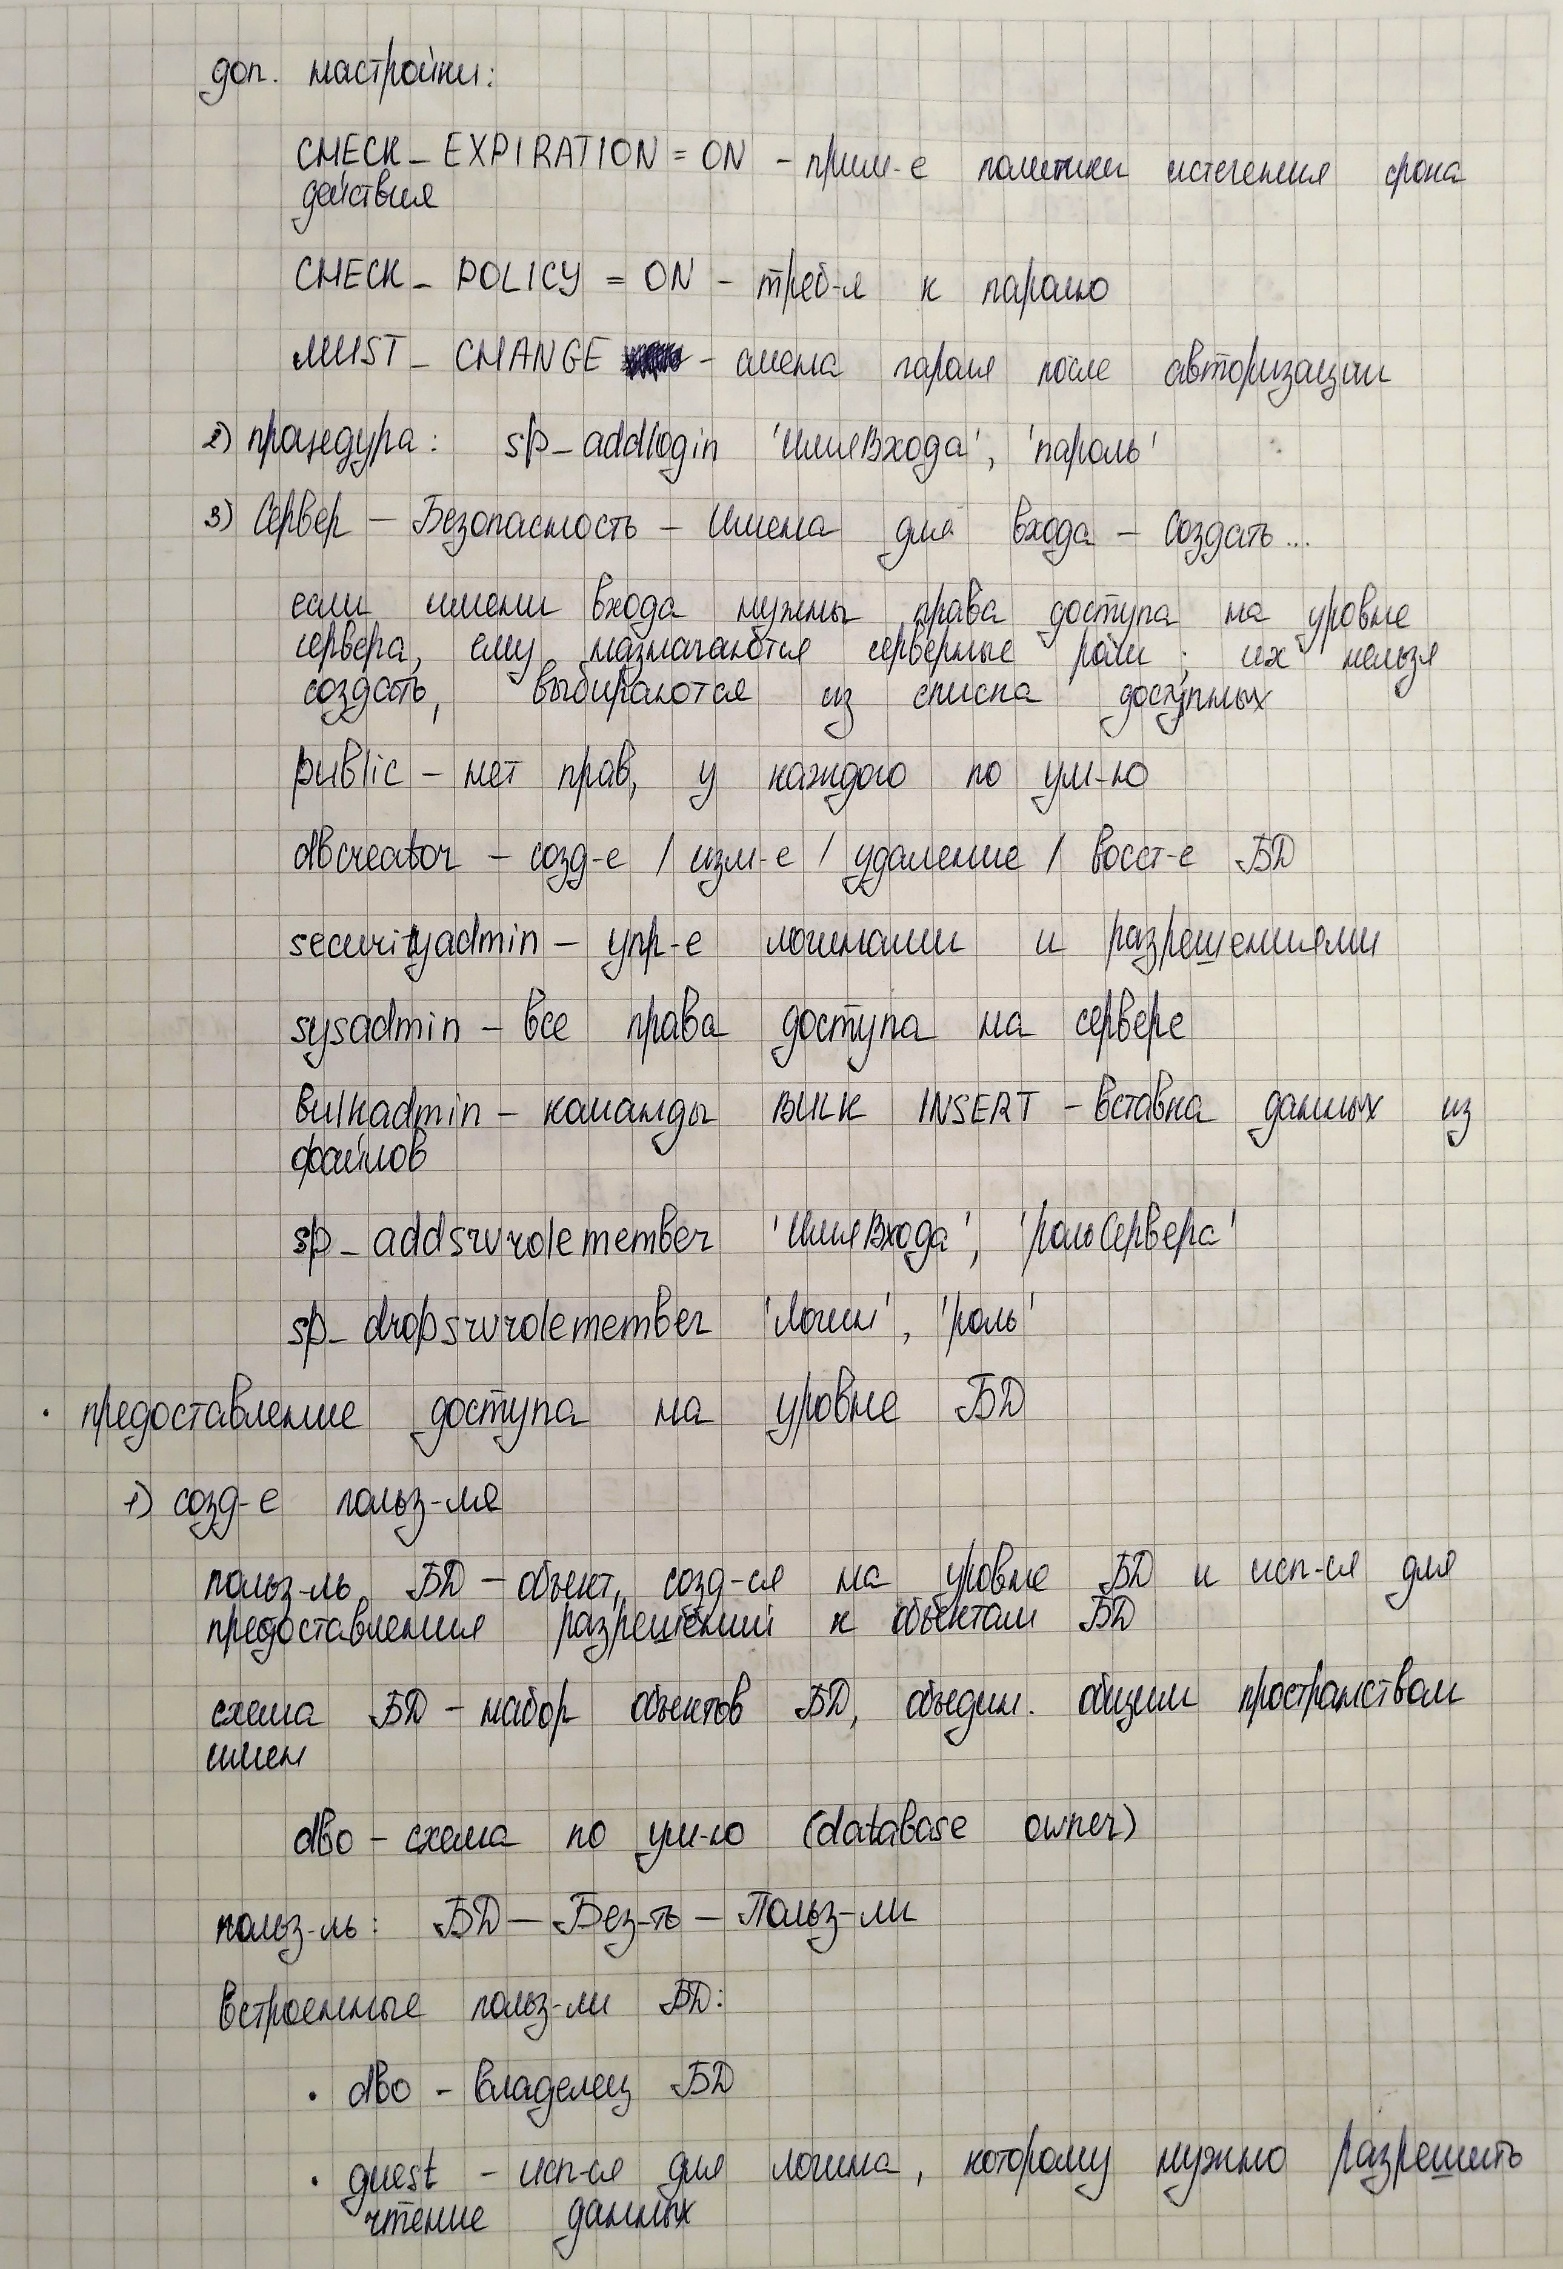 доп. настройки:
CHECK_EXPIRATION = ON - прим-е политики истечения срока
действия
CHECK_POLICY = ON - треб-я к паролю
MUST_CHANGE - смена пароля после авторизации
2) процедура: sp_addlogin 'ИмяВхода', 'пароль'
3) Сервер - Безопасность - Имена для входа - Создать...
если имени входа нужны права доступа на уровне
сервера, ему назначаются серверные роли; их нельзя
создать, выбираются из списка доступных
public - нет прав, у каждого по ум-ю
dbcreator - созд-е / изм-е / удаление / восст-е БД
securityadmin - упр-е логинами и разрешениями
sysadmin - все права доступа на сервере
bulkadmin - команды BULK INSERT - вставка данных из
файлов
sp_addsrvrolemember 'ИмяВхода', 'рольСервера'
sp_dropsrvrolemember 'Логин', 'роль'
· предоставление доступа на уровне БД
1) созд-е польз-ля
польз-ль БД - объект, созд-ся на уровне БД и исп-ся для
предоставления разрешений к объектам БД
схема БД - набор объектов БД, объедин. общим пространством
имен
dbo - схема по ум-ю (database owner)
польз-ль: БД - Без-ть - Польз-ли
встроенные польз-ли БД:
· dbo - владелец БД
· guest - исп-ся для логина, которому нужно разрешить
чтение данных